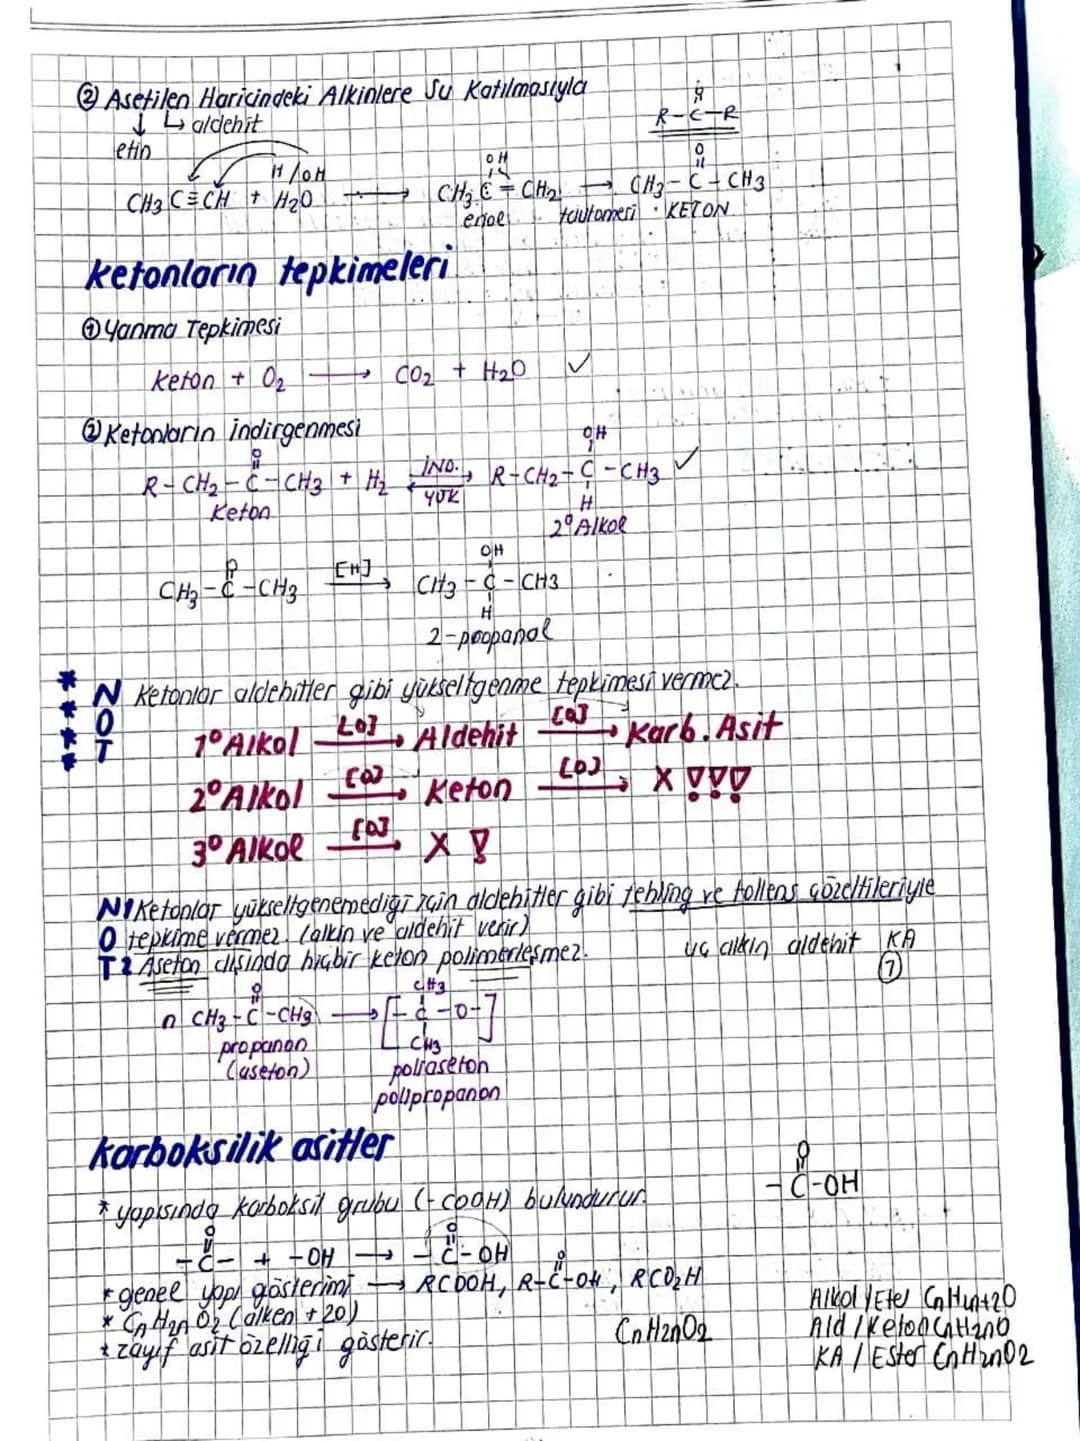 ② Asetilen Haricindeki Alkinlere Su Katılmasıyla
↓ ↳ aldehit
etin
O
R-C-R
H/OH
CH3C≡CH + H2O → CH3C=CH2 → CH3-C-CH3
OH
O
enol tautomeri · KETON
ketonların tepkimeleri
① Yanma Tepkimesi
keton + O2 → CO2 + H2O ✓
② Ketonların indirgenmesi
O
OH
R-CH2-C-CH3 + H2 İND. YÜK R-CH2-C-CH3 ✓
Keton
H
2° Alkol
O
OH
CH3-C-CH3 [H] → CH3-C-CH3
H
2-propanol
**** NOT Ketonlar aldehitler gibi yükseltgenme tepkimesi vermez.
1° Alkol [O] → Aldehit [O] → Karb. Asit
2° Alkol [O] → Keton [O] → X !!!
3° Alkol [O] → X !
NOT 1 Ketonlar yükseltgenemediği için aldehitler gibi fehling ve tollens çözeltileriyle
tepkime vermez. (alkin ve aldehit verir)
uç alkin aldehit KA
2 Aseton dışında hiçbir keton polimerleşmez.
①
O
CH3
n CH3-C-CH3 → [-C-O-]
CH3
propanon
(aseton)
poliaseton
polipropanon
karboksilik asitler
O
-C-OH
* yapısında karboksil grubu (-COOH) bulundurur.
O
O
-C- + -OH → -C-OH
* genel yapı gösterimi → RCOOH, R-C-OH, RCO2H
O
* CnH2nO2 (alken + 2O)
CnH2nO2
* zayıf asit özelliği gösterir.
Alkol / Eter CnH2n+2O
Ald / Keton CnH2nO
KA / Ester CnH2nO2